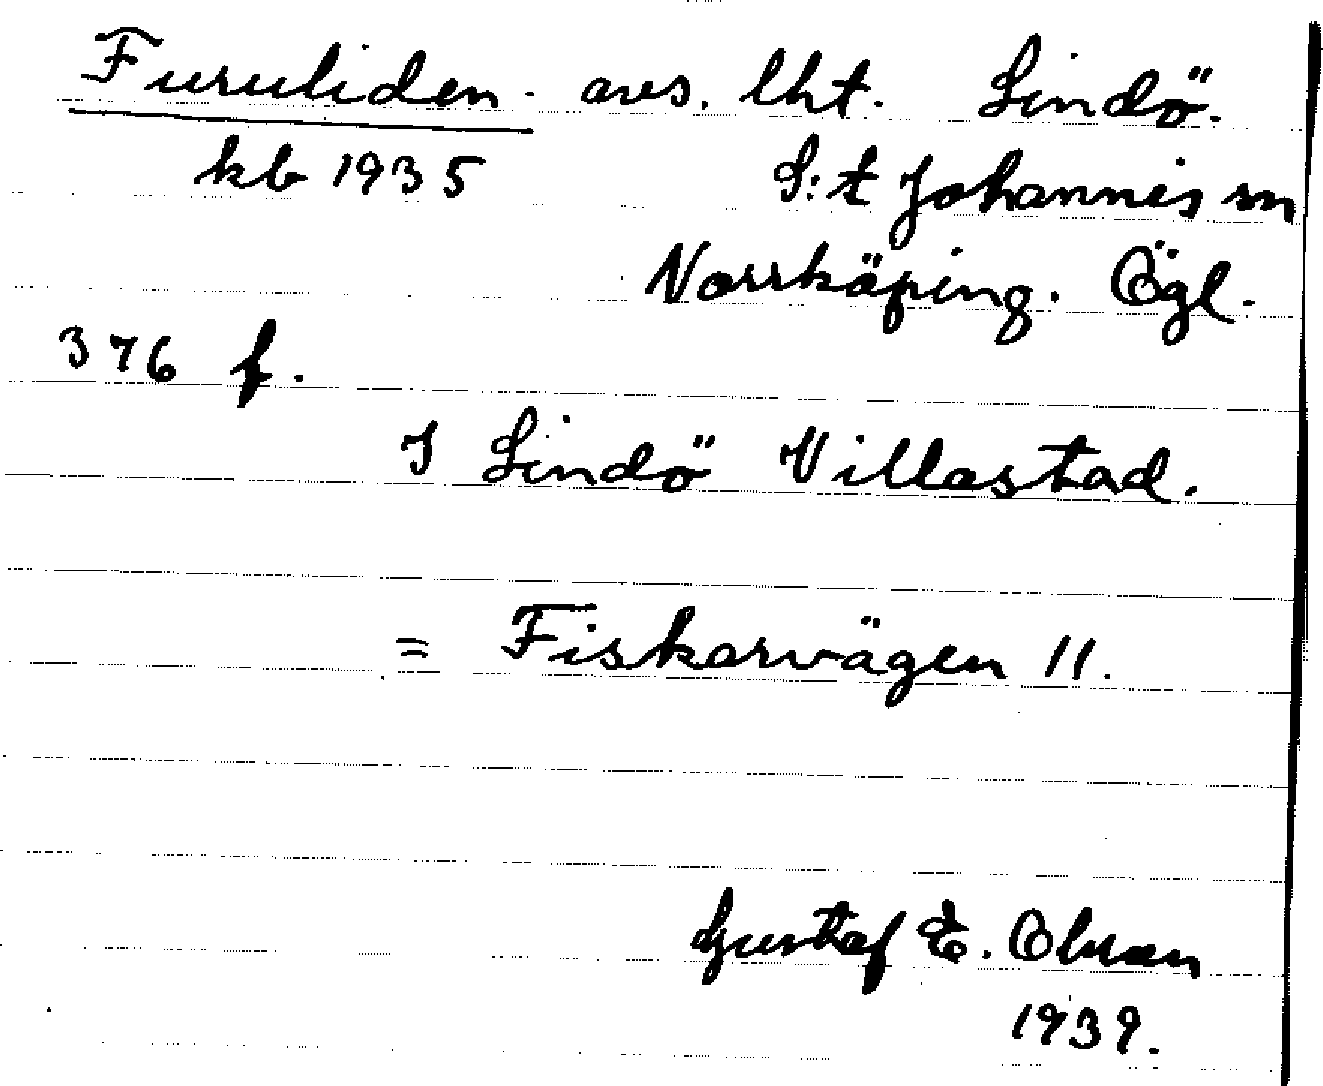 Furuliden. avs. lht. Lindö.
kb 1935 S:t Johannis sn
Norrköping. Ögl.
376 f.
I Lindö Villastad.
= Fiskarvägen 11.
Gustaf E. Olsson
1939.